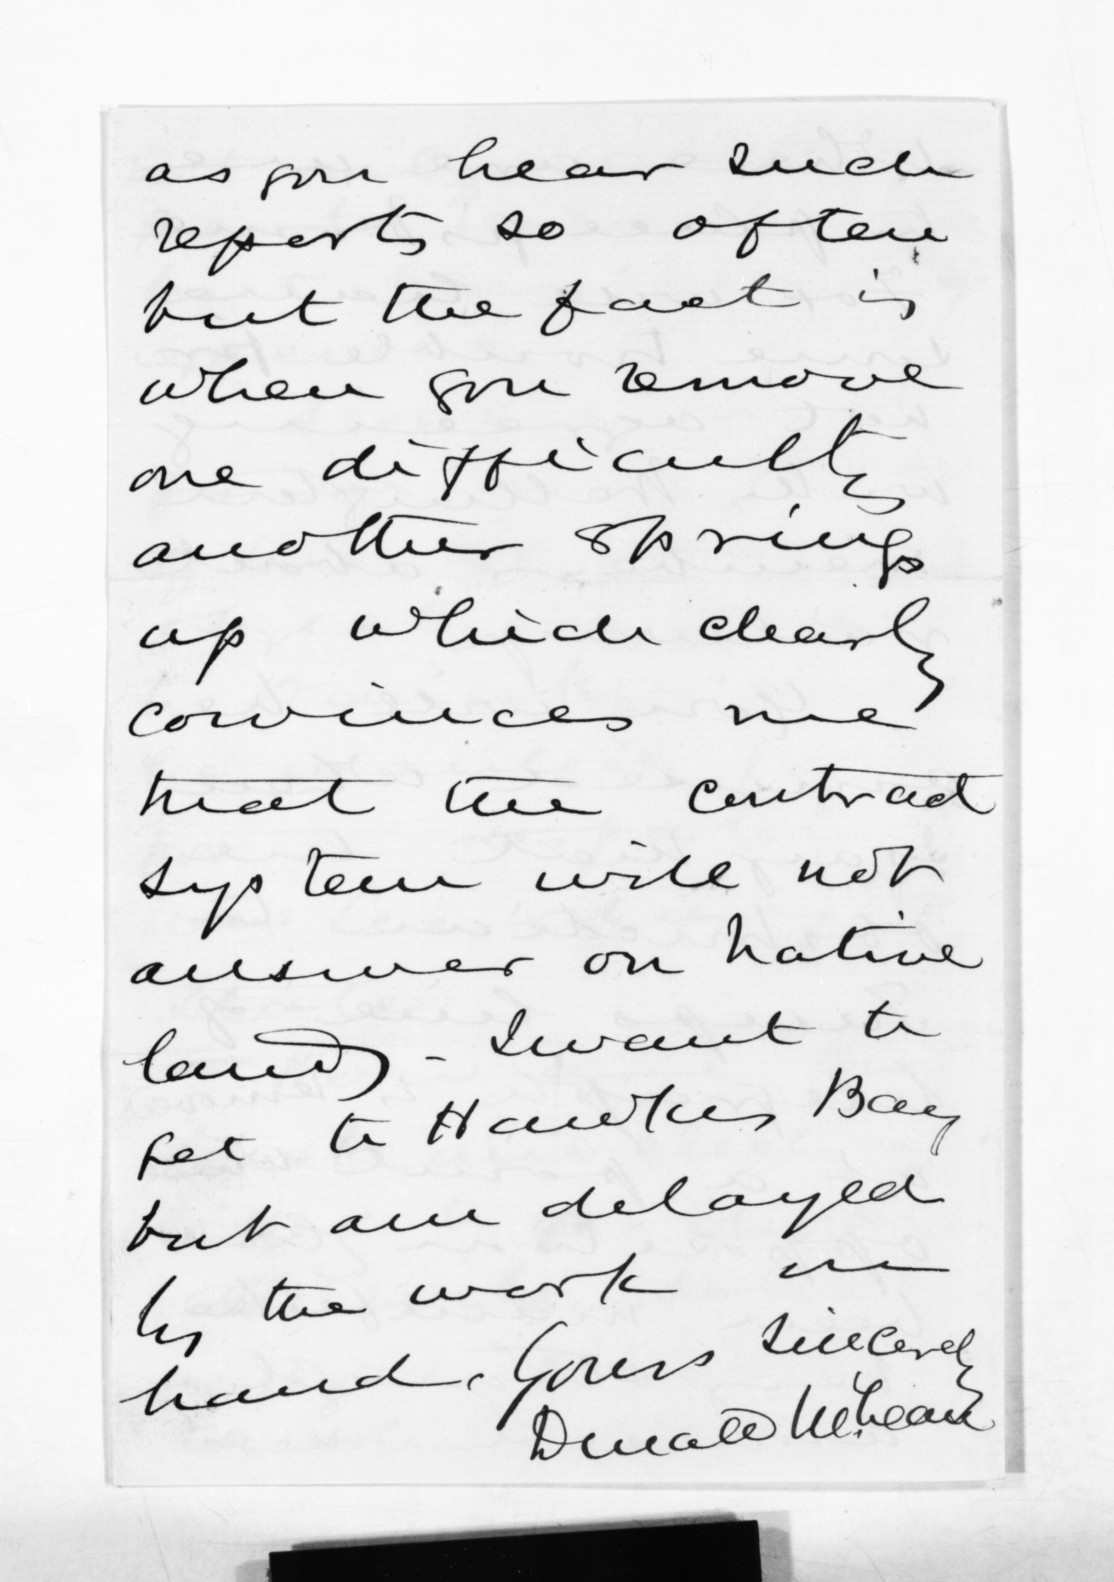 as you hear such
reports so often
but the fact is
when you remove
one difficulty
another springs
up which clearly
convinces me
that the contract
system will not
answer on Native
lands - I want to
get to Hawkes Bay
but am delayed
by the work in
hand. Yours sincerely
Donald McLean